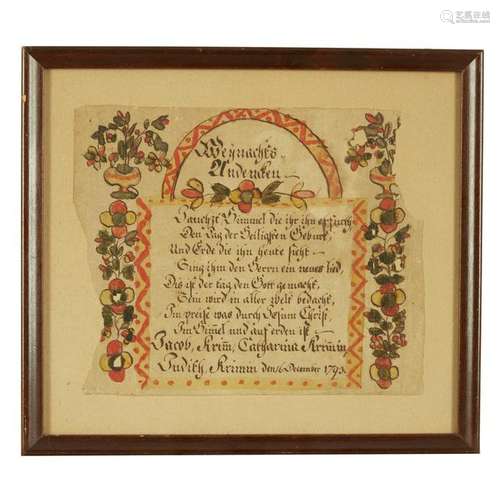 艺狐在线
Weynachts
Andencken
Jauchzt Himmel die ihr ihn
Den Tag der Heiligsten Geburt,
Und Erde die ihn heute sieht
Sing ihm den Herrn ein neues lied,
Dis ist der tag den Gott gemacht,
Sein wird in aller welt bedacht,
Im preise was durch Jesum Christ,
Im Himel und auf erden ist
Jacob, Krim, Catharina Krimin
Judith, Krimm den 16 December 1793.